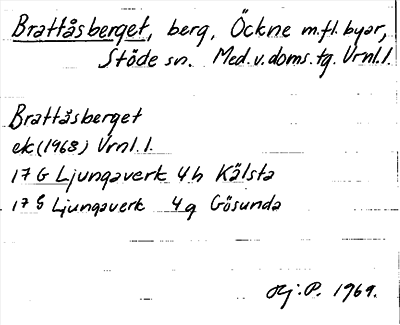 Brattåsberget, berg, Öckne m.fl. byar,
Stöde sn. Med.v.doms.tg. Vrnl.l.
Brattåsberget
ek (1968) Vrnl.l.
17 G Ljungaverk 4h Kälsta
17 G Ljungaverk 4g Gösunda
Hj.P. 1969.